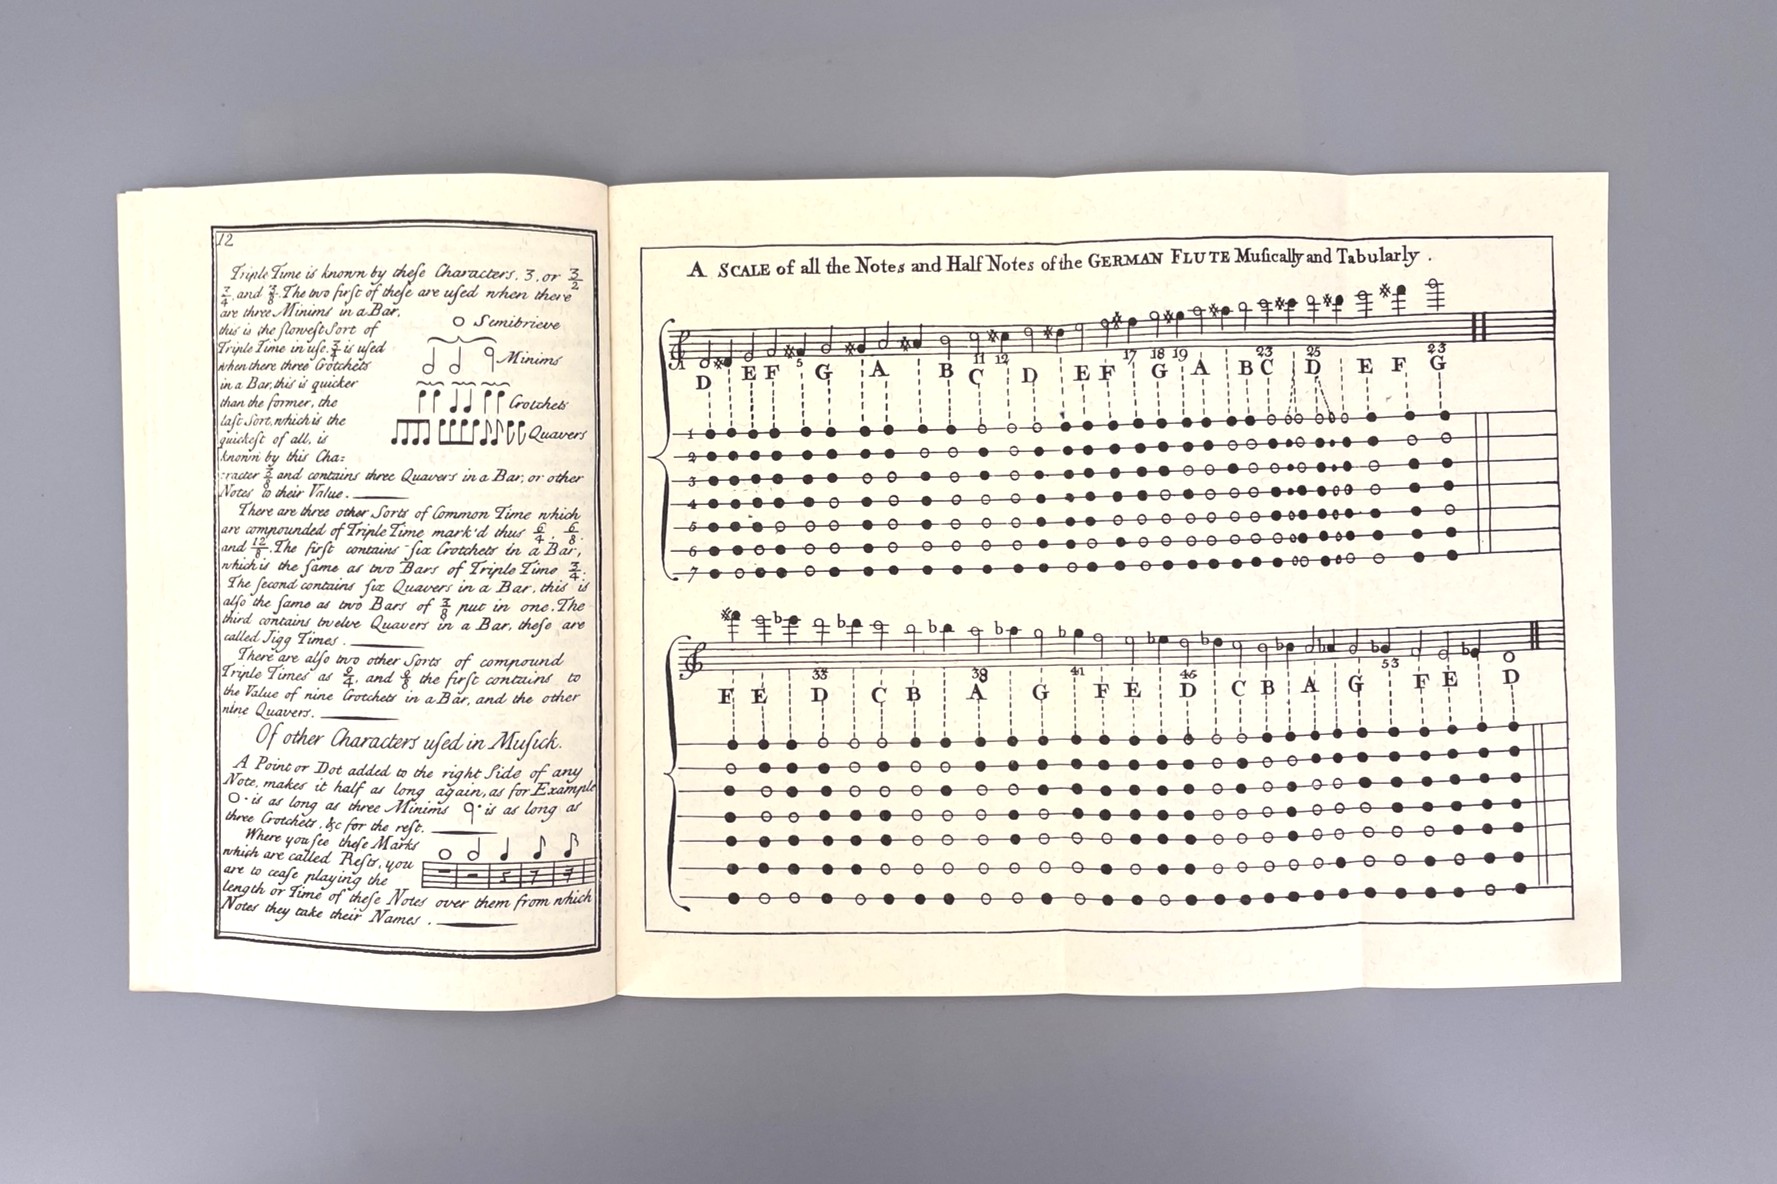 12
Triple Time is known by theſe Characters. 3, or 3/2
3/4 and 3/8. The two firſt of theſe are uſed when there
are three Minims in a Bar,
this is the ſloweſt Sort of
Triple Time in uſe. 3/4 is uſed
when there three Crotchets
in a Bar, this is quicker
than the former, the
laſt Sort, which is the
quickeſt of all, is
known by this Cha=
:racter 3/8 and contains three Quavers in a Bar, or other
Notes to their Value.
Semibrieve
Minims
Crotchets
Quavers
There are three other Sorts of Common Time which
are compounded of Triple Time mark'd thus 6/4, 6/8.
and 12/8. The firſt contains ſix Crotchets in a Bar,
which is the ſame as two Bars of Triple Time 3/4:
The Second contains ſix Quavers in a Bar, this is
alſo the ſame as two Bars of 3/8 put in one. The
third contains twelve Quavers in a Bar, theſe are
called Jigg Times.
There are alſo two other Sorts of compound
Triple Times as 9/4, and 9/8 the firſt contains to
the Value of nine Crotchets in a Bar, and the other
nine Quavers.
Of other Characters uſed in Muſick.
A Point or Dot added to the right Side of any
Note, makes it half as long again, as for Example
is as long as three Minims is as long as
three Crotchets, &c for the reſt.
Where you ſee theſe Marks
which are called Reſts, you
are to ceaſe playing the
length or Time of theſe Notes over them from which
Notes they take their Names.
A SCALE of all the Notes and Half Notes of the GERMAN FLUTE Muſically and Tabularly.
5 11 12 17 18 19 23 25 23
D E F G A B C D E F G A B C D E F G
1
2
3
4
5
6
7
33 38 41 46 53
F E D C B A G F E D C B A G F E D